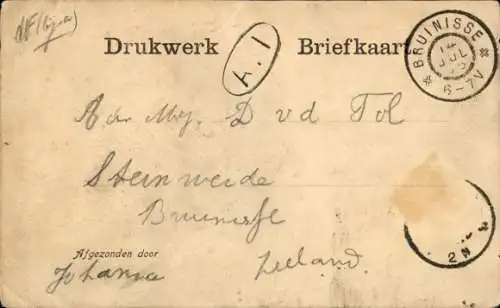 Drukwerk Briefkaart
A.1
BRUINISSE
JUL
6-7V
D vd Tol
Steinweide
Bruinisse
Zeeland.
Afgezonden door
Johanna
2N